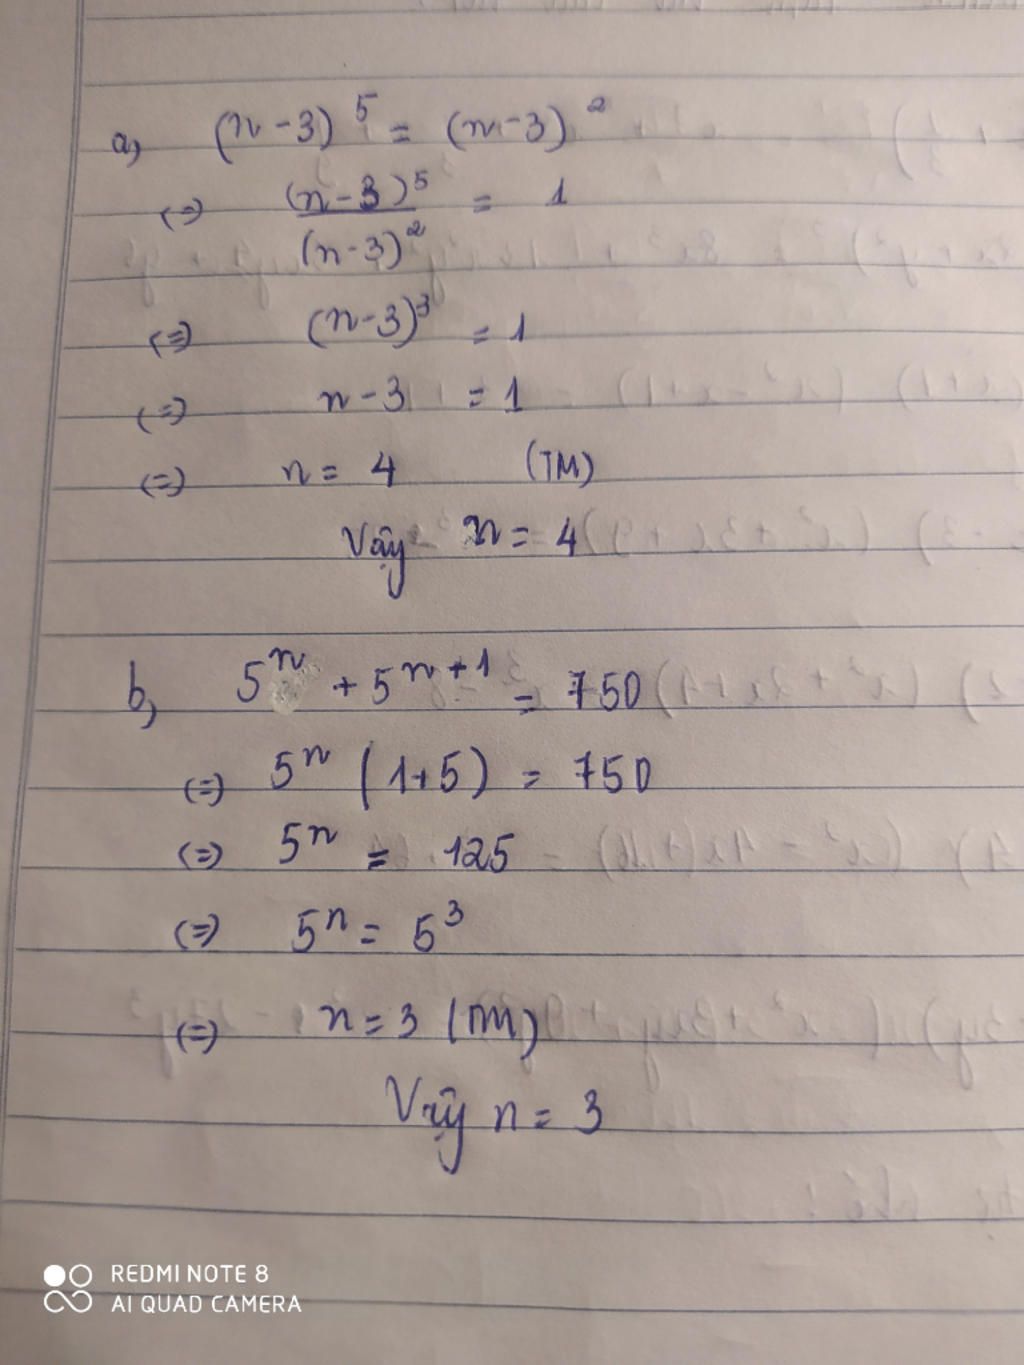 a, (n-3)^5 = (n-3)^2
(=) (n-3)^5 / (n-3)^2 = 1
(=) (n-3)^3 = 1
(=) n-3 = 1
(=) n = 4 (TM)
Vậy n = 4
b, 5^n + 5^{n+1} = 750
(=) 5^n (1+5) = 750
(=) 5^n = 125
(=) 5^n = 5^3
(=) n = 3 (TM)
Vậy n = 3
REDMI NOTE 8
AI QUAD CAMERA